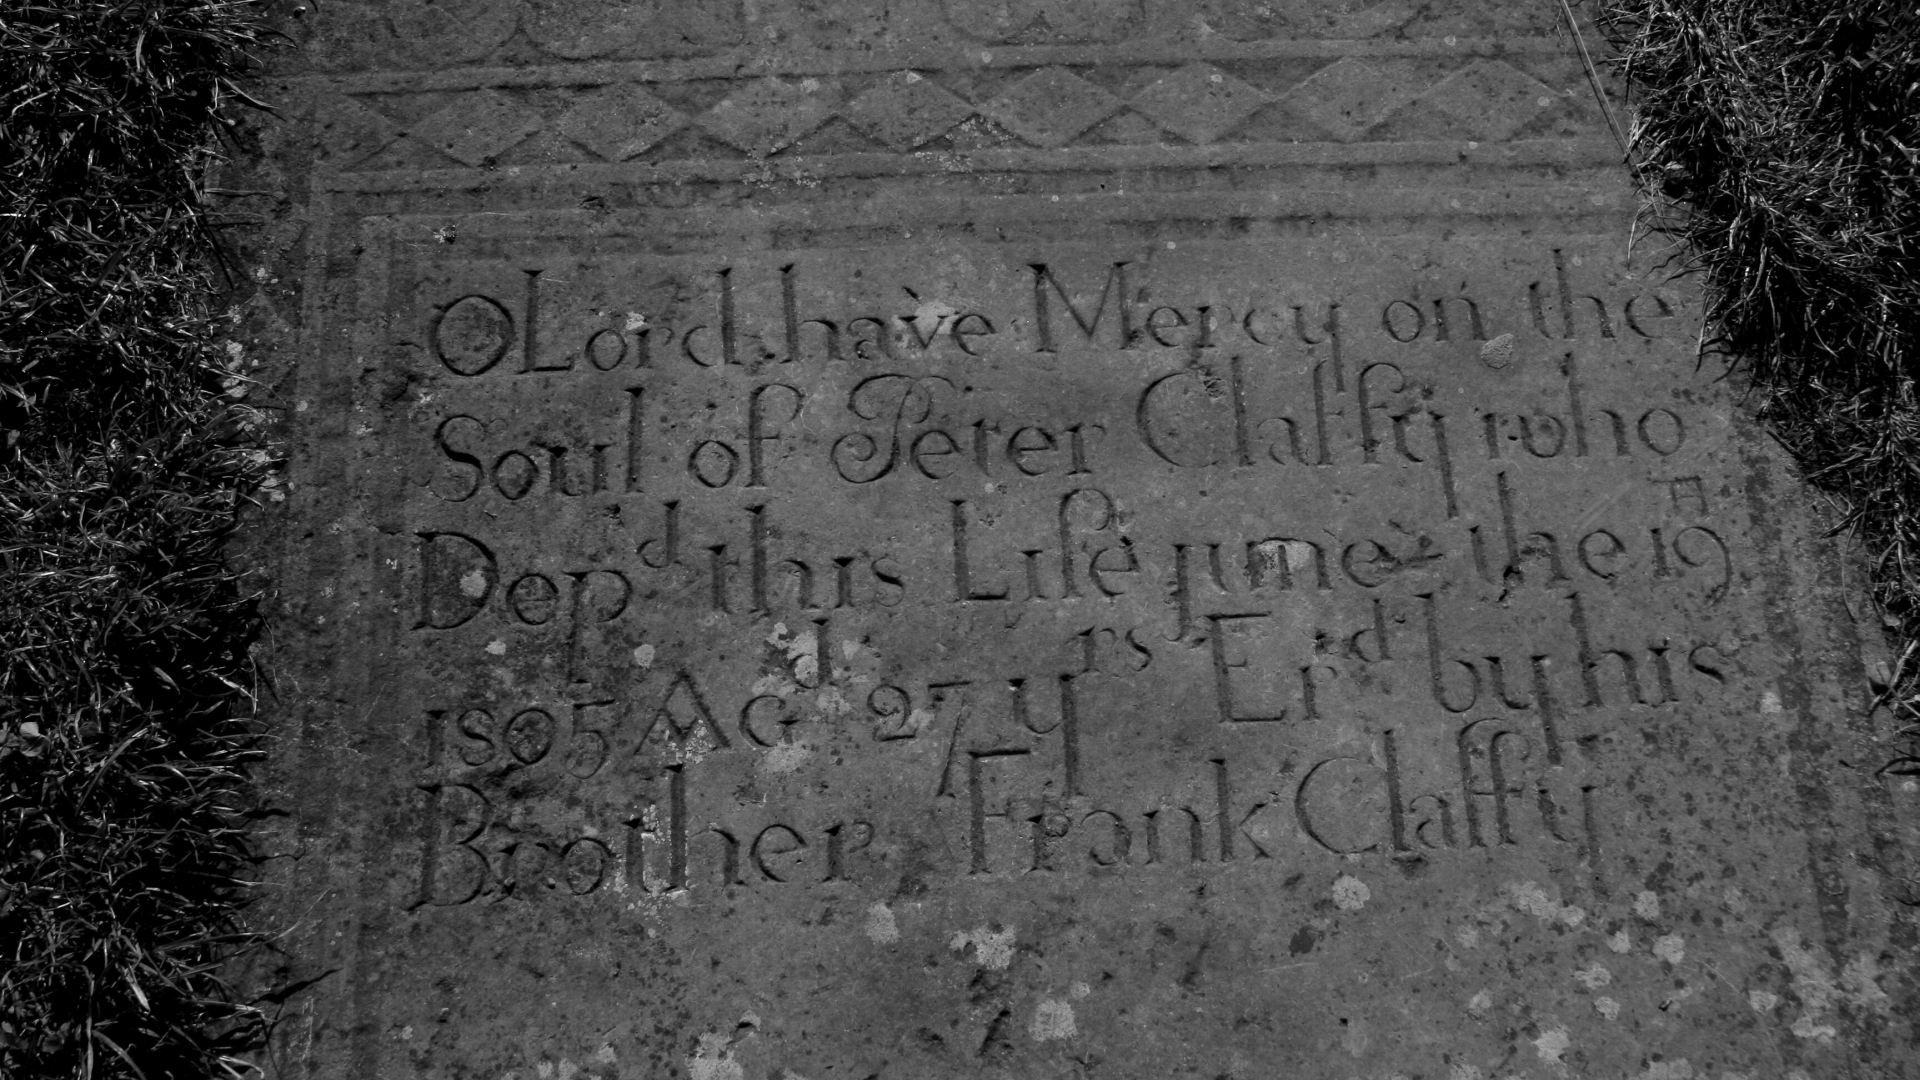 O Lord have Mercy on the
Soul of Peter Claffy who
Depd this Life june the 19
1805 AGd 27 yrs Erd by his
Brother Frank Claffy